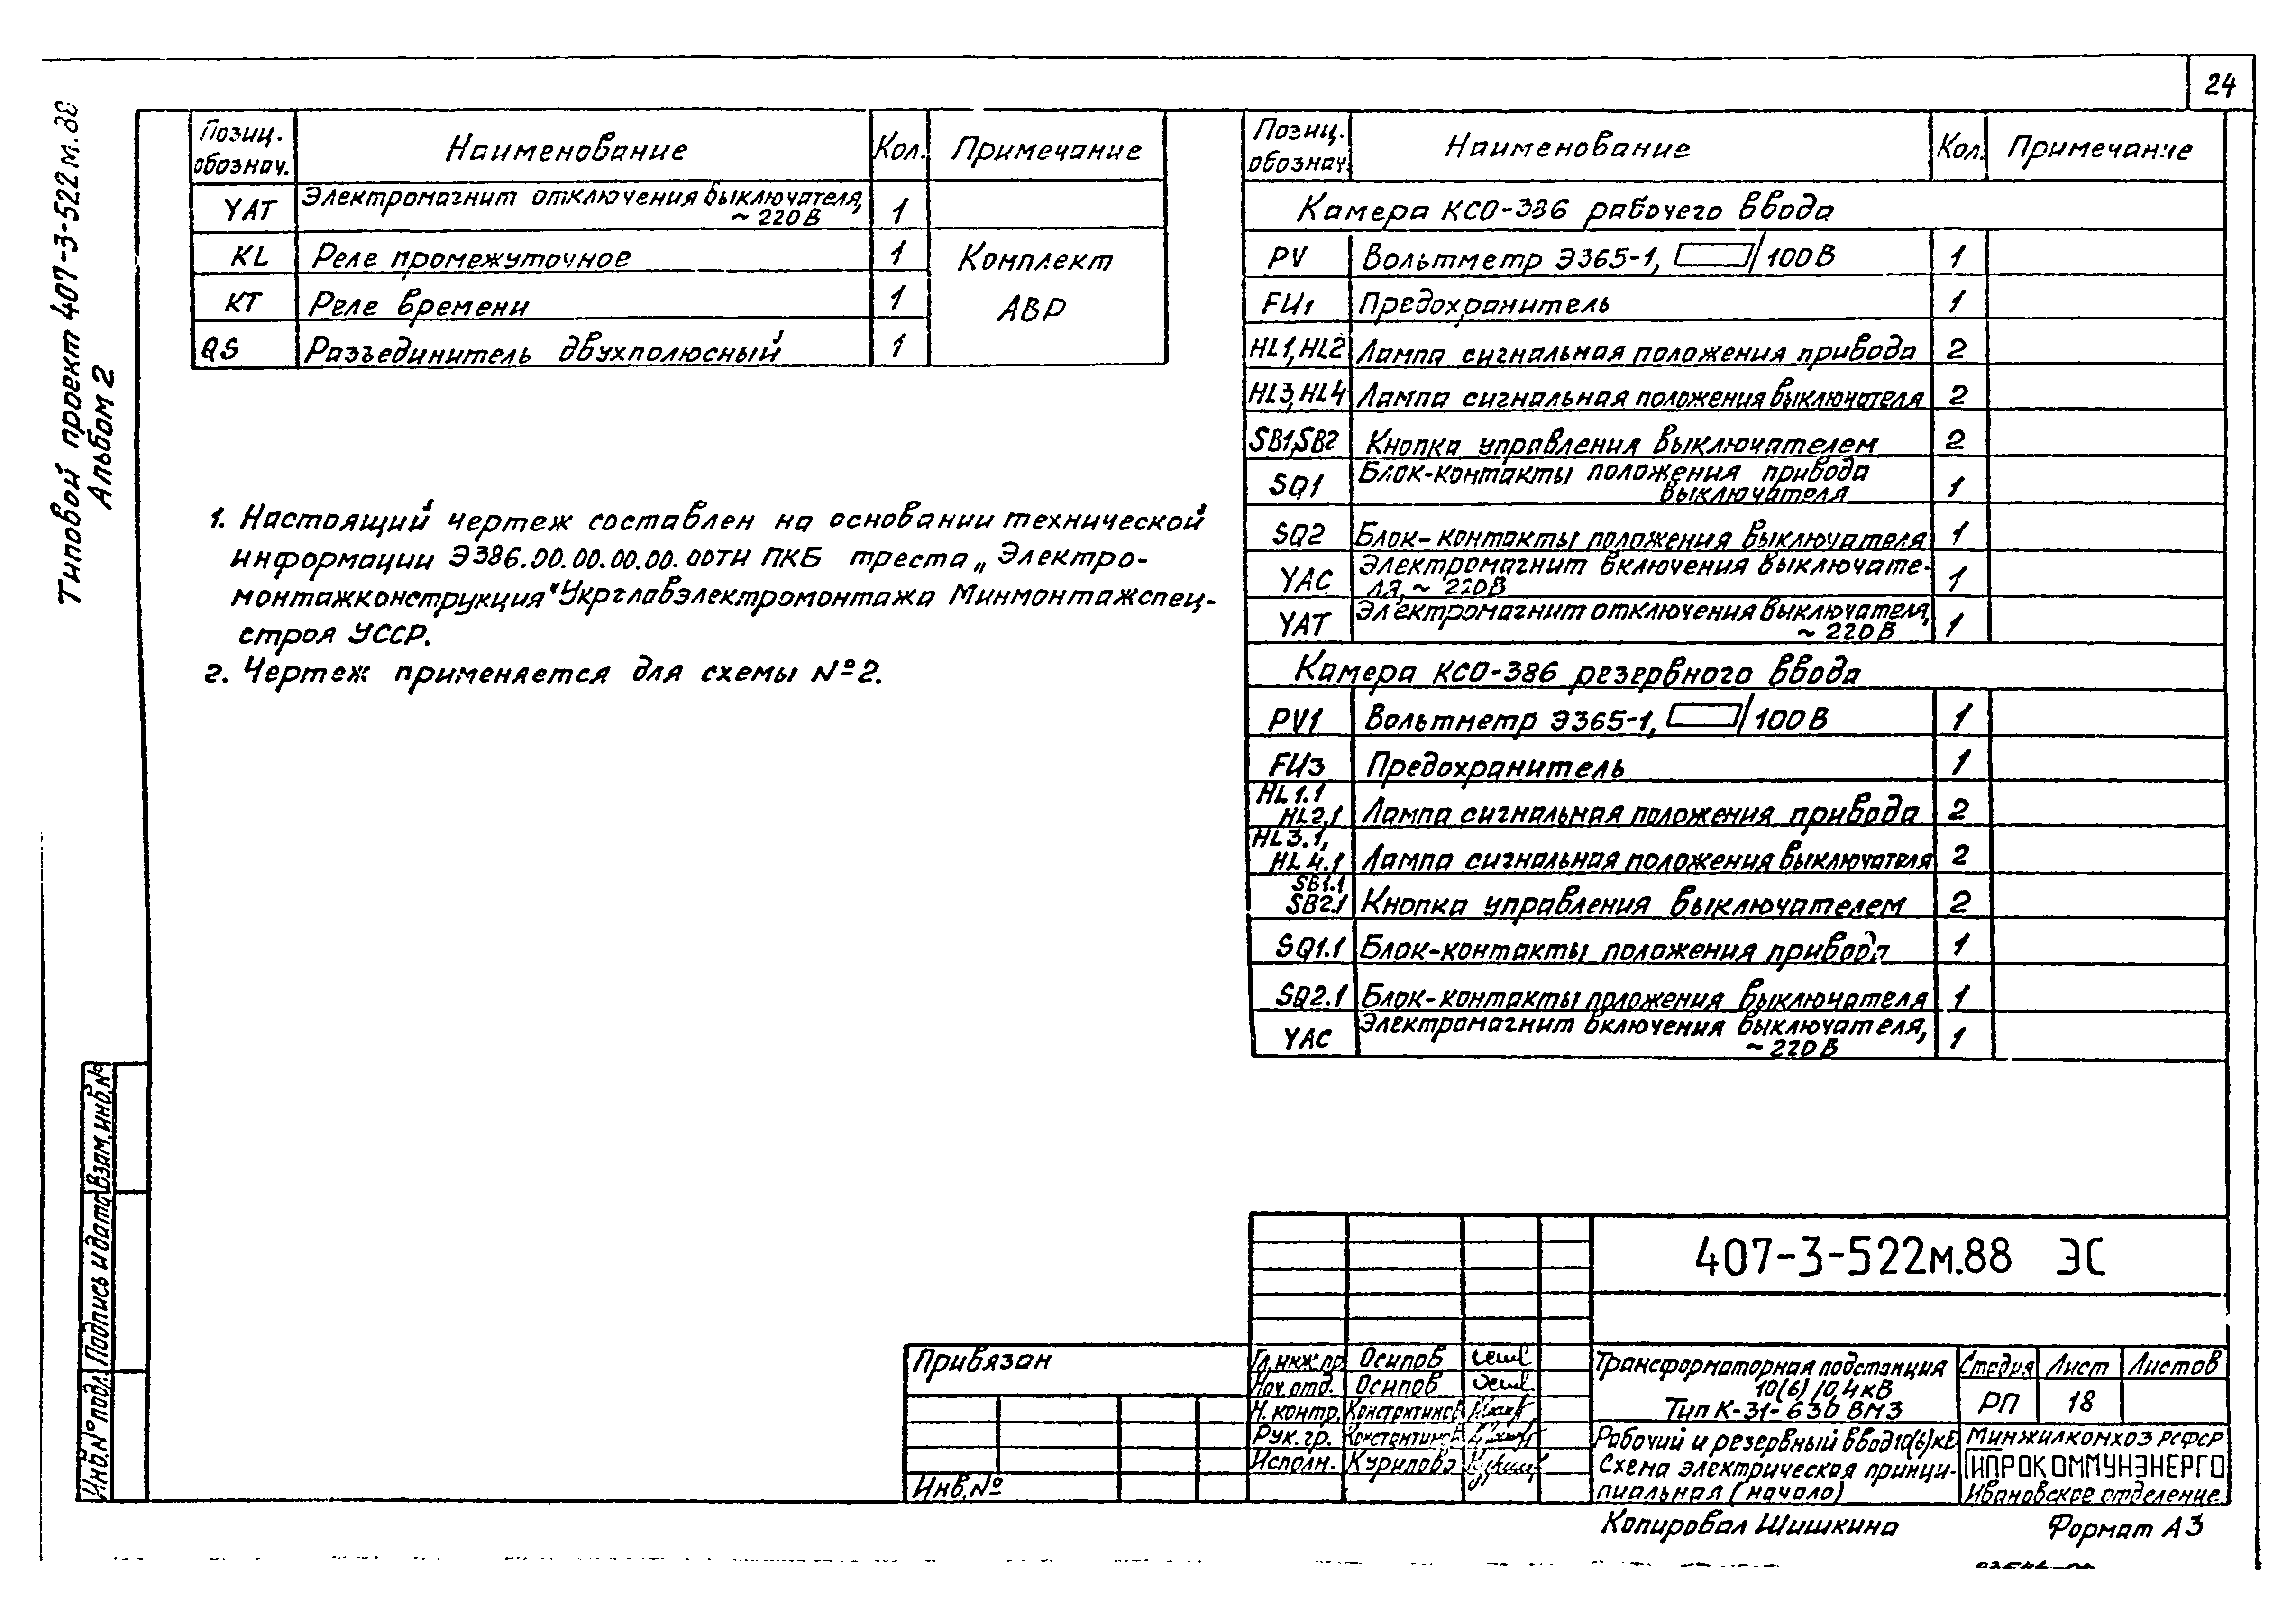 24
Типовой проект 407-3-522м.88
Альбом 2
Позиц. обознач. Наименование Кол. Примечание
YAT Электромагнит отключения выключателя, ~220В 1
KL Реле промежуточное 1 Комплект
KT Реле времени 1 АВР
QS Разъединитель двухполюсный 1
1. Настоящий чертеж составлен на основании технической
информации Э386.00.00.00.00.00ТИ ПКБ треста „Электро-
монтажконструкция" Укрглавэлектромонтажа Минмонтажспец-
строя УССР.
2. Чертеж применяется для схемы №2.
Позиц. обознач. Наименование Кол. Примечание
Камера КСО-386 рабочего ввода
PV Вольтметр Э365-1, /100В 1
FU1 Предохранитель 1
HL1,HL2 Лампа сигнальная положения привода 2
HL3,HL4 Лампа сигнальная положения выключателя 2
SB1,SB2 Кнопка управления выключателем 2
SQ1 Блок-контакты положения привода
выключателя 1
SQ2 Блок-контакты положения выключателя 1
YAC Электромагнит включения выключате-
ля, ~220В 1
YAT Электромагнит отключения выключателя,
~220В 1
Камера КСО-386 резервного ввода
PV1 Вольтметр Э365-1, /100В 1
FU3 Предохранитель 1
HL1.1 HL2.1 Лампа сигнальная положения привода 2
HL3.1, HL4.1 Лампа сигнальная положения выключателя 2
SB1.1 SB2.1 Кнопка управления выключателем 2
SQ1.1 Блок-контакты положения привода 1
SQ2.1 Блок-контакты положения выключателя 1
YAC Электромагнит включения выключателя,
~220В 1
Инв.№ подл. Подпись и дата Взам.инв.№
407-3-522м.88 ЭС
Привязан
Инв.№
Гл.инж.пр Осипов
Нач.отд. Осипов
Н.контр. Константинов
Рук.гр. Константинов
Исполн. Курилова
Трансформаторная подстанция
10(6)/0,4кВ
Тип К-31-630 ВМ3
Стадия Лист Листов
РП 18
Рабочий и резервный ввод 10(6)кВ
Схема электрическая принци-
пиальная (начало)
Минжилкомхоз РСФСР
ГИПРОКОММУНЭНЕРГО
Ивановское отделение
Копировал Шишкина
Формат А3